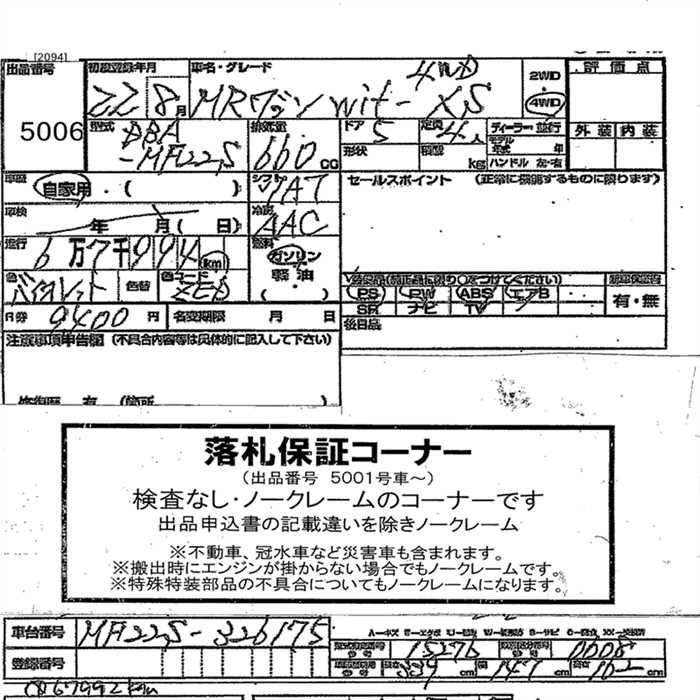 [2094]
出品番号 初度登録年月 車名・グレード 4WD 2WD 評価点
5006 22 8月 MRワゴン wit- XS 4WD
型式 排気量 ドア 定員 ディーラー・並行 外装 内装
DBA 660 CC 5 4人 モデル年式 年
-MF22S 形状 積載 kg ハンドル 左・右
車歴 自家用・( ) シフト IAT セールスポイント (正常に機能するものに限ります)
車検 年 月( 日) 冷房 AAC
走行 6万7千994 km 燃料 ガソリン
色 バイオレット 色替 色コード ZED 軽油
( )
PS PW ABS エアB 有・無
SR ナビ TV
R券 9400円 名変期限 月 日 後日品
注意事項申告欄(不具合内容等は具体的に記入して下さい)
修復歴 有 (箇所
落札保証コーナー
(出品番号 5001号車~)
検査なし・ノークレームのコーナーです
出品申込書の記載違いを除きノークレーム
※不動車、冠水車など災害車も含まれます。
※搬出時にエンジンが掛からない場合でもノークレームです。
※特殊特装部品の不具合についてもノークレームになります。
車台番号 MF22S-326175
15276 0008
登録番号 339 cm 幅 147 cm 162 cm
67992km